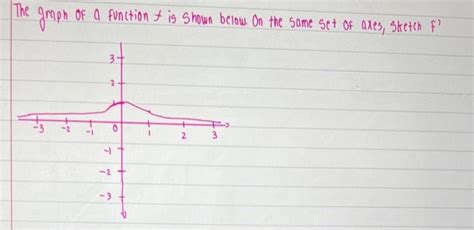 The graph of a function f is shown below On the same set of axes, sketch f'
3
2
-3 -2 -1 0 1 2 3
-1
-2
-3